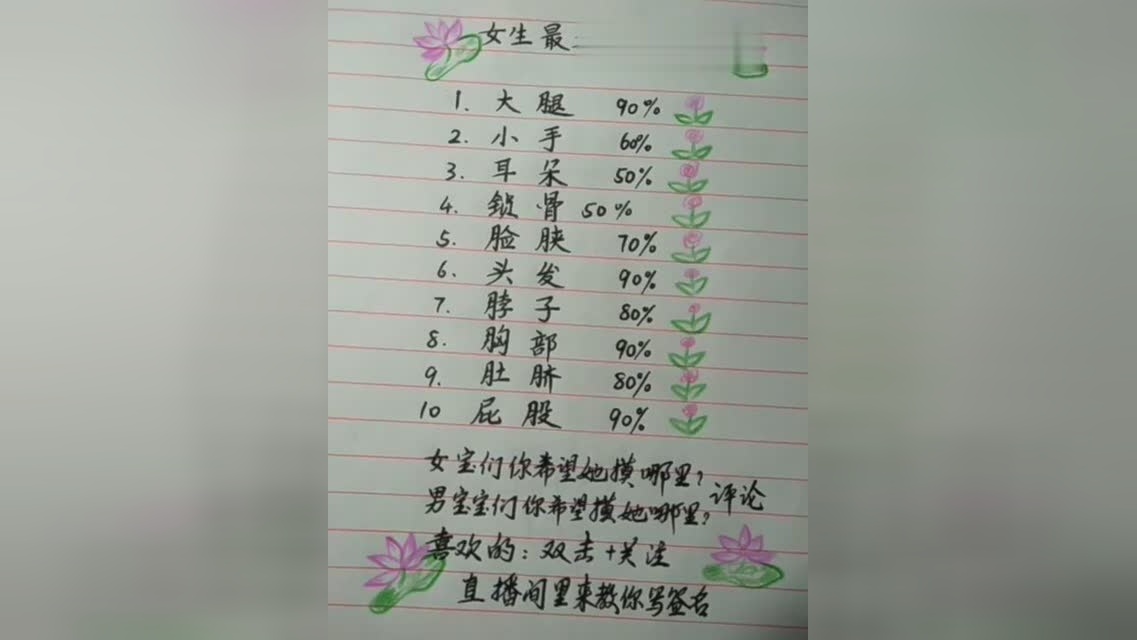 女生最
1. 大腿 90%
2. 小手 60%
3. 耳朵 50%
4. 锁骨 50%
5. 脸颊 70%
6. 头发 90%
7. 脖子 80%
8. 胸部 90%
9. 肚脐 80%
10 屁股 90%
女宝们你希望她摸哪里?
男宝宝们你希望摸她哪里? 评论
喜欢的:双击+关注
直播间里来教你写签名